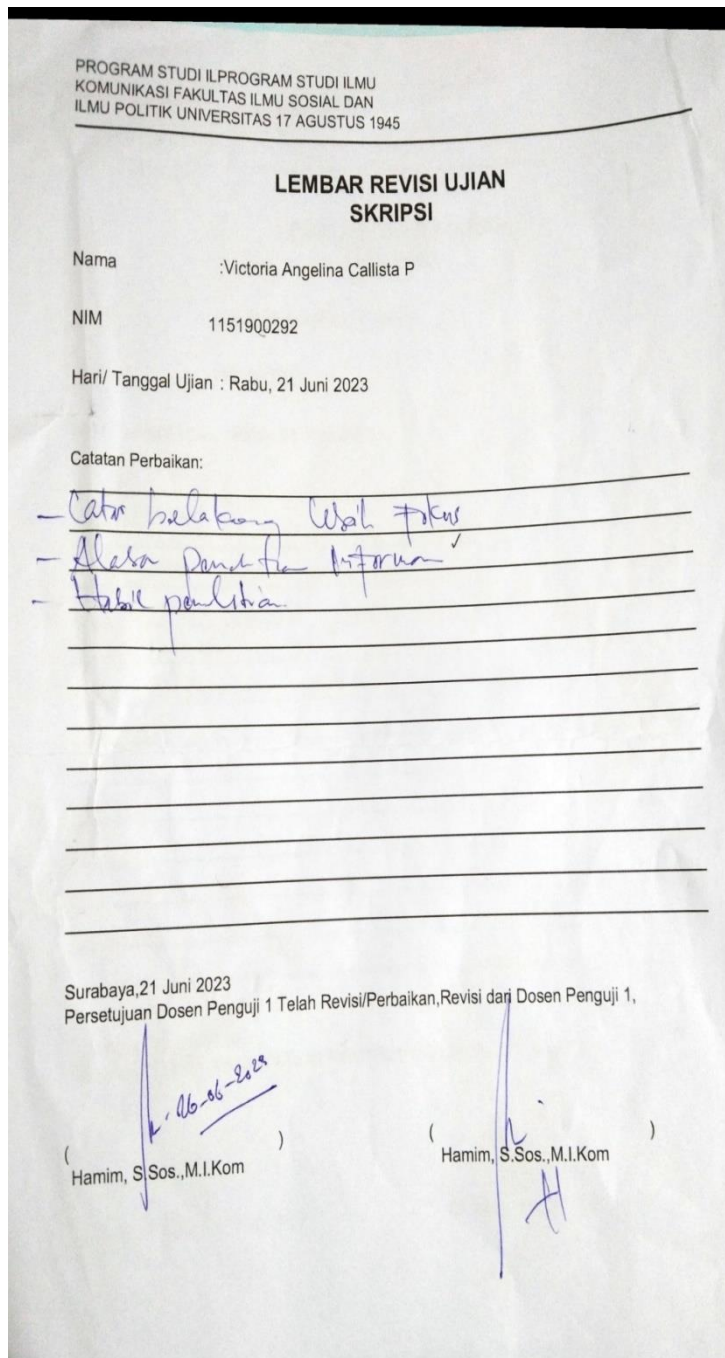 PROGRAM STUDI ILPROGRAM STUDI ILMU
KOMUNIKASI FAKULTAS ILMU SOSIAL DAN
ILMU POLITIK UNIVERSITAS 17 AGUSTUS 1945
LEMBAR REVISI UJIAN
SKRIPSI
Nama :Victoria Angelina Callista P
NIM 1151900292
Hari/ Tanggal Ujian : Rabu, 21 Juni 2023
Catatan Perbaikan:
- Latar belakang lebih Fokus
- Alasan Informan
- Hasil penelitian
Surabaya,21 Juni 2023
Persetujuan Dosen Penguji 1 Telah Revisi/Perbaikan,Revisi dari Dosen Penguji 1,
26-06-2023
( ) ( )
Hamim, S.Sos.,M.I.Kom Hamim, S.Sos.,M.I.Kom